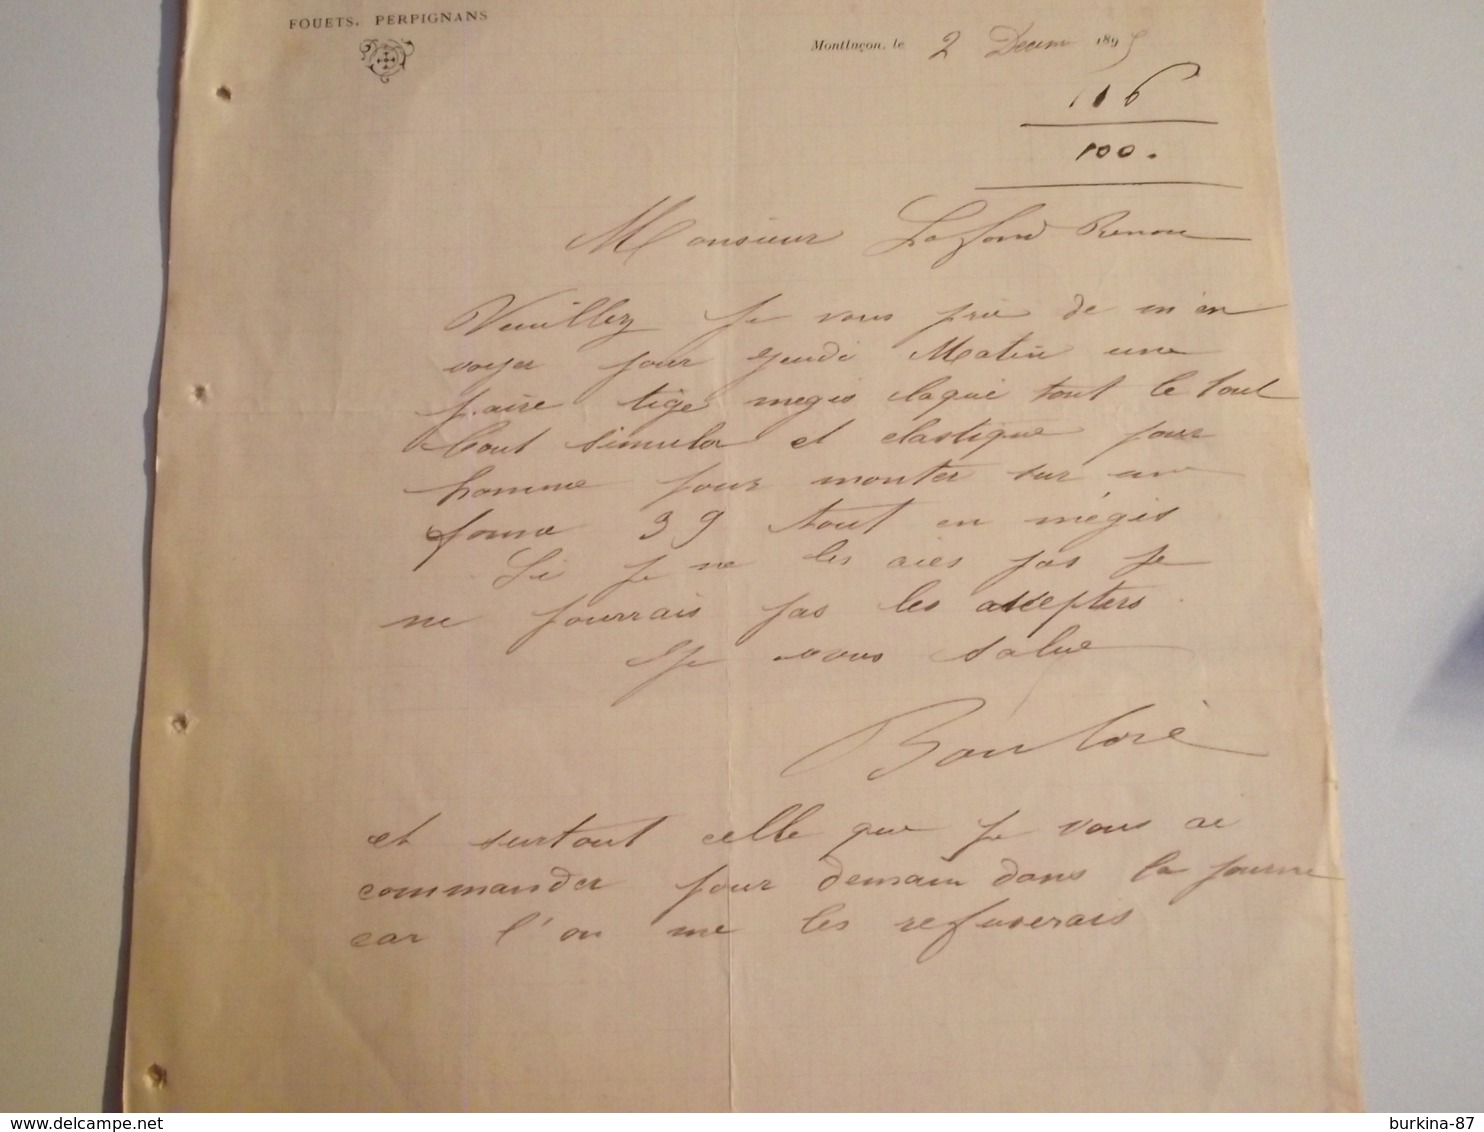 FOUETS, PERPIGNANS
Montluçon, le 2 Decem 1895
116
100.
Monsieur Lafond Renou
Veuillez je vous prie de m'en
voyer pour Jeudi Matin une
paire tige megis claqué tout le tout
bout simula et elastique pour
homme pour monter sur une
forme 39 tout en mégis
Si je ne les aies pas je
ne pourrais pas les accepters.
Je vous salue
et surtout celle que je vous ai
commander pour demain dans la journe
car l'on me les refuserais
burkina-87